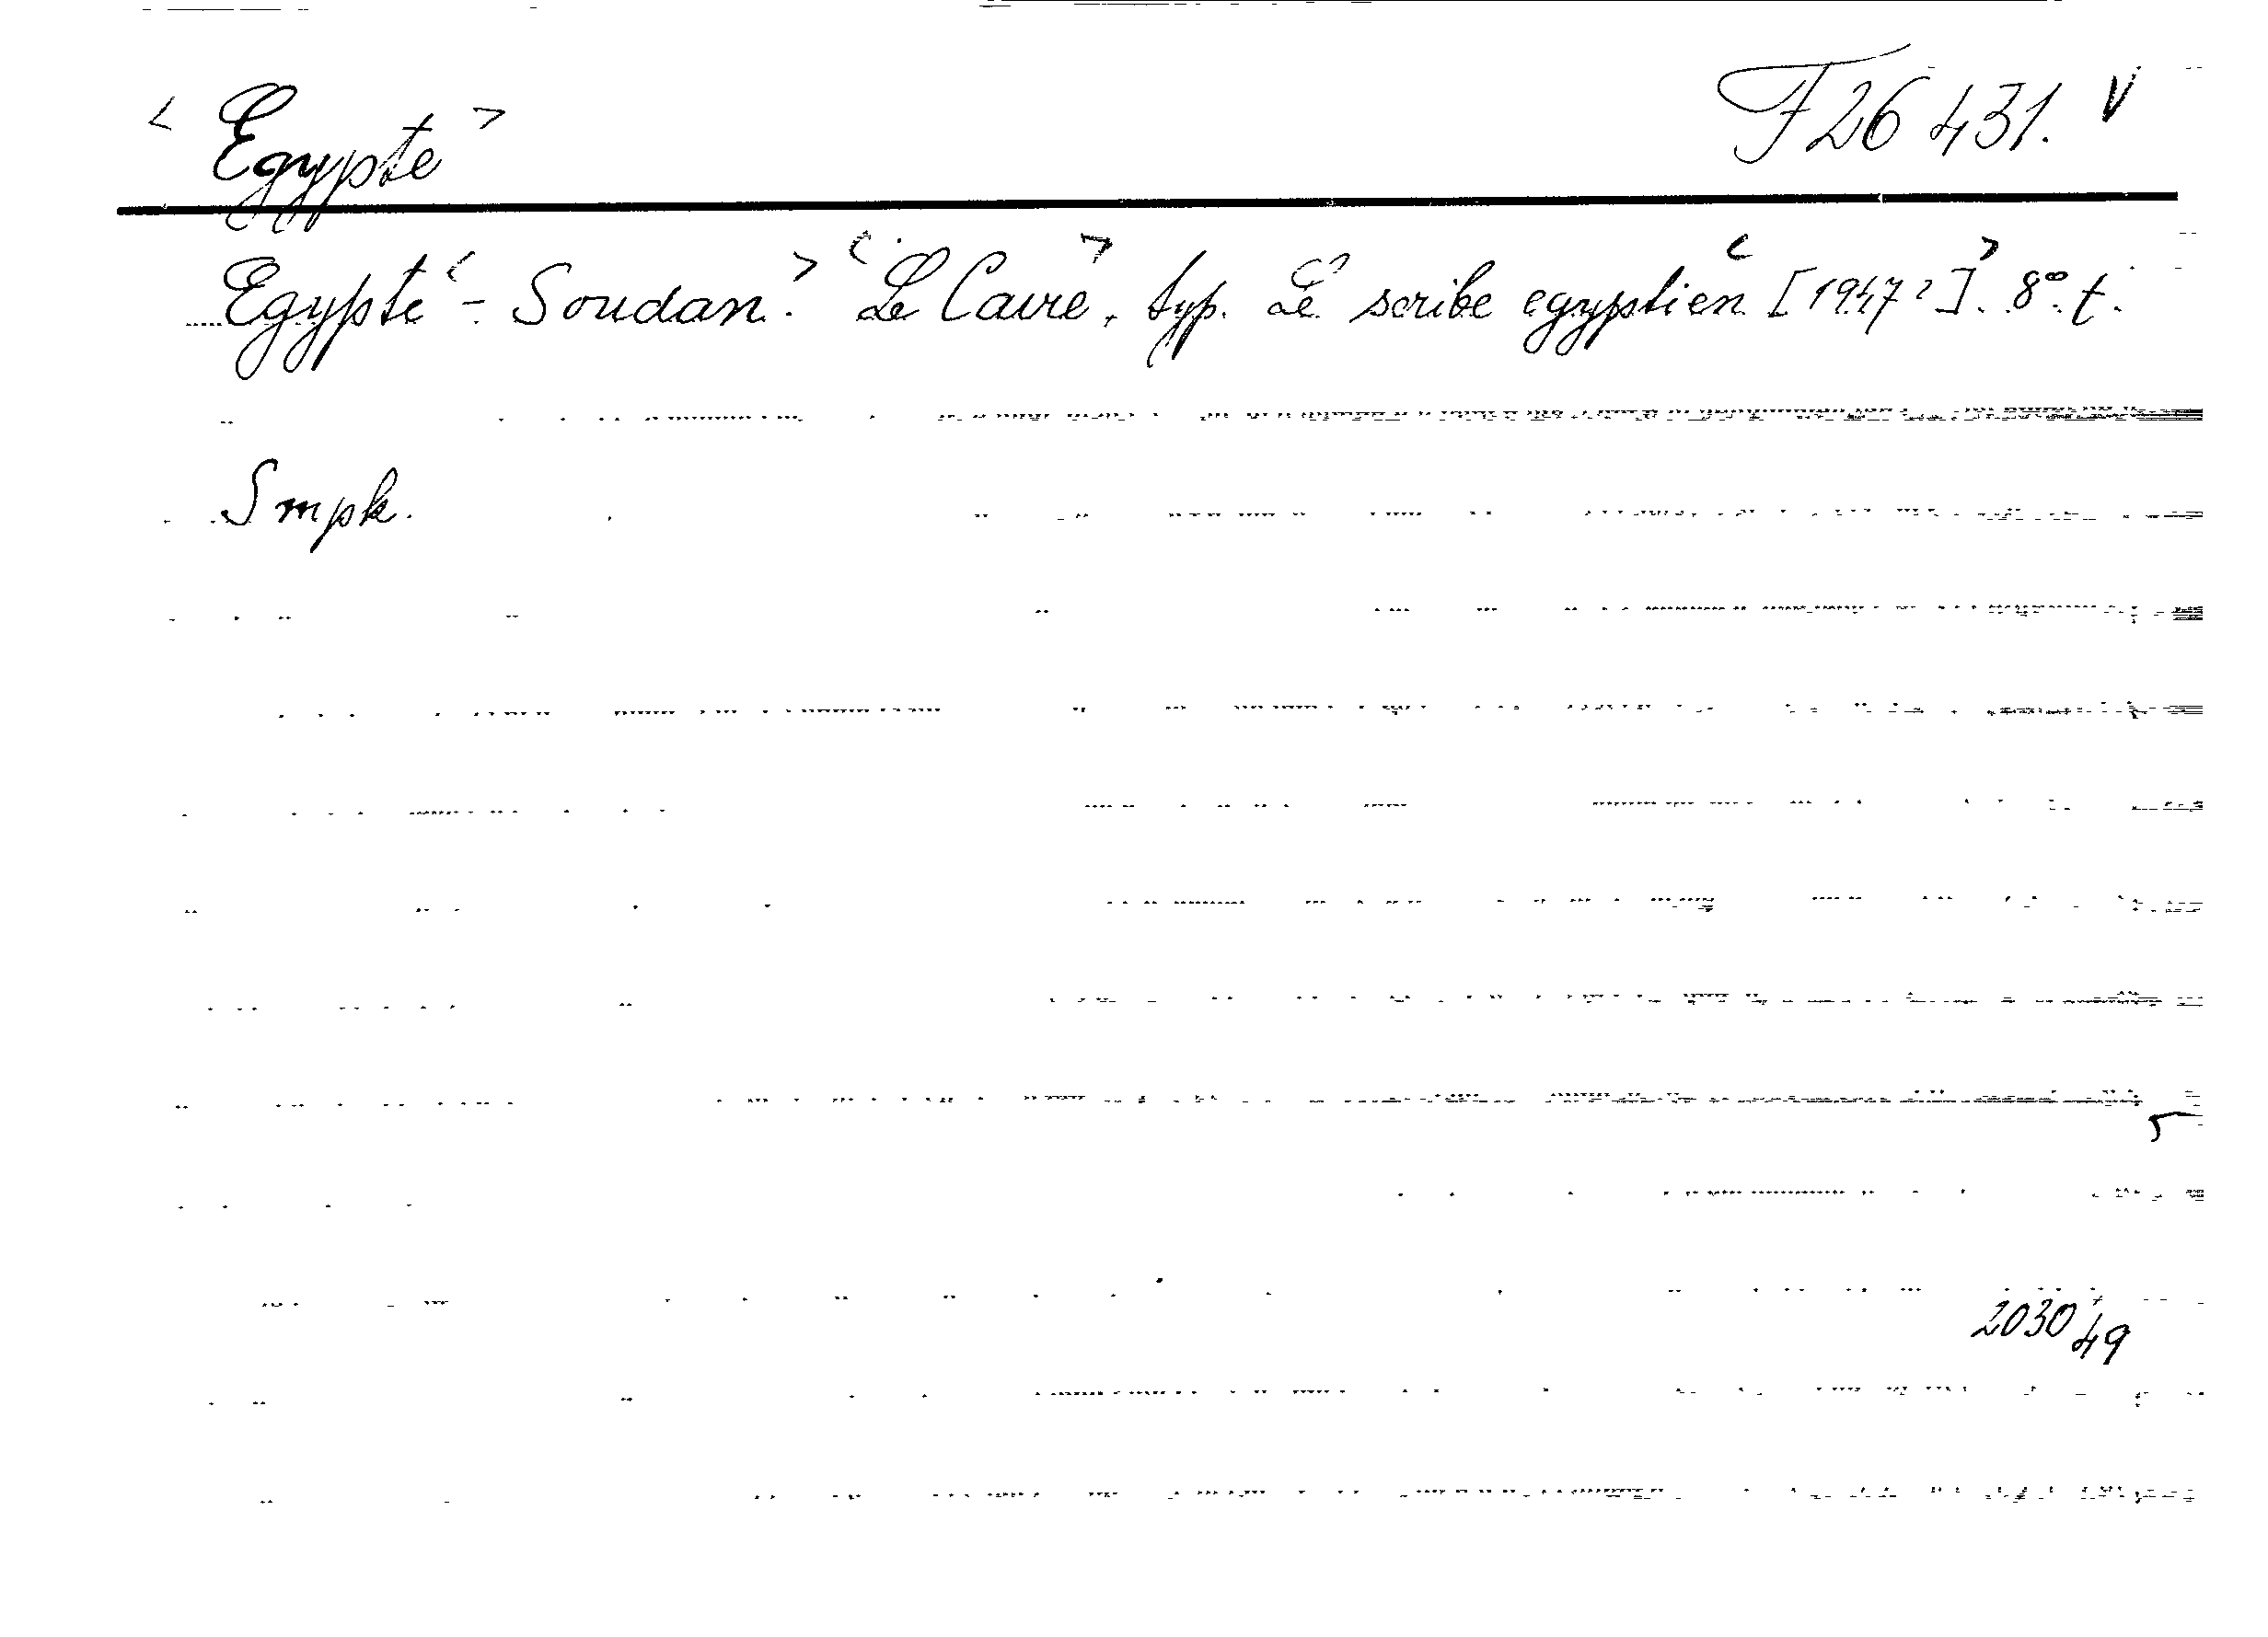 < Egypte > F 26 431. V
Egypte < - Soudan. > < Le Caire >, typ. "Le scribe egyptien" < [1947?] >. 8°. t.
Smpk.
2030/49